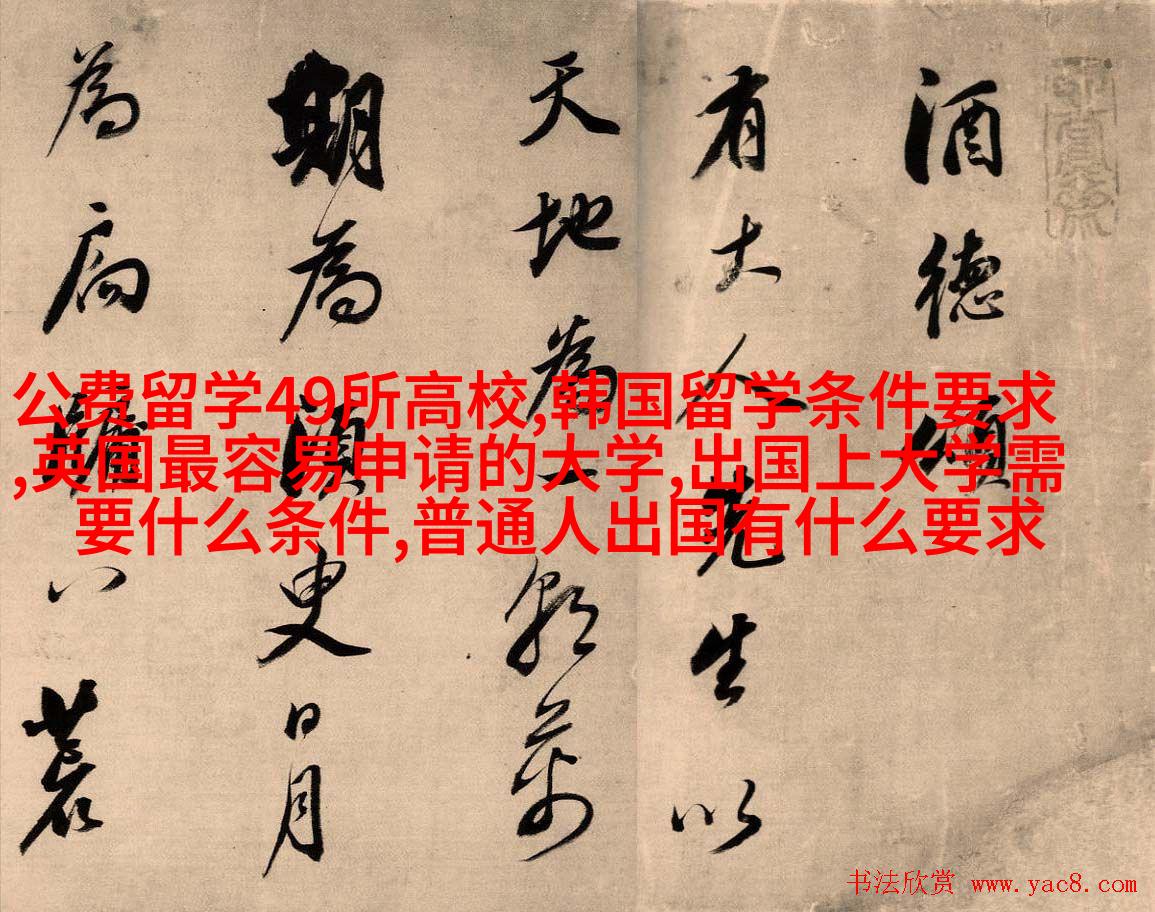 酒德頌
有大人先生以
天地為一朝萬
期為須臾日月
為扃牖八荒
公费留学49所高校,韩国留学条件要求
,英国最容易申请的大学,出国上大学需
要什么条件,普通人出国有什么要求
书法欣赏 www.yac8.com